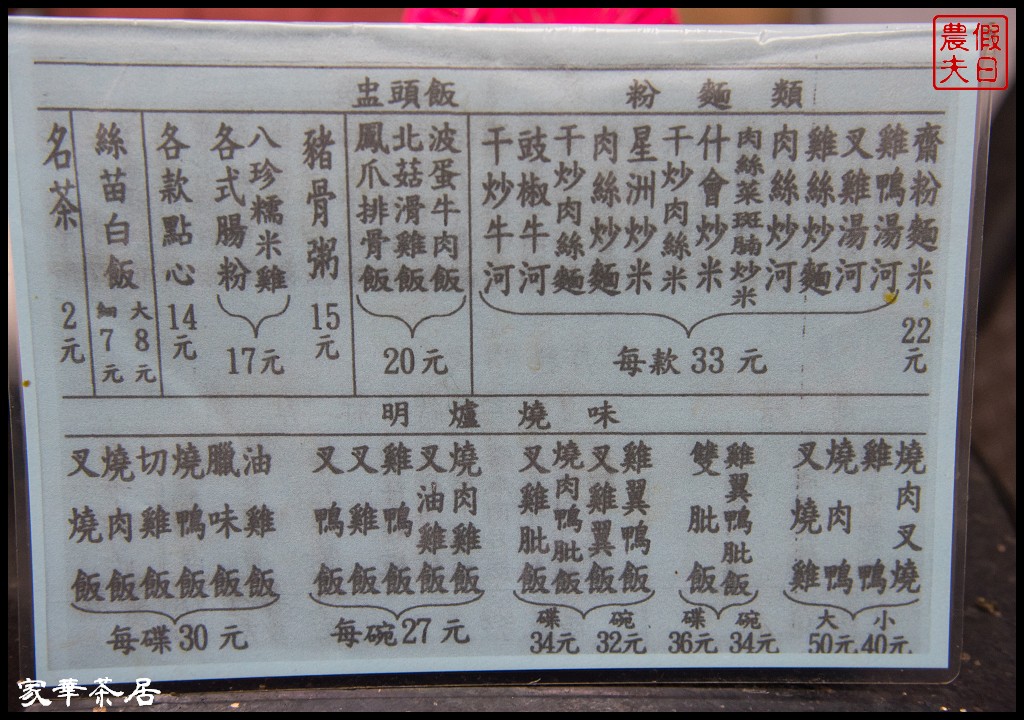 假日農夫
粉麵類
齋粉麵米
22元
雞鴨湯河
叉雞湯河
雞絲炒麵
肉絲炒河
肉絲菜斑腩炒米
什會炒米
干炒肉絲米
星洲炒米
肉絲炒麵
干炒肉絲麵
豉椒牛河
干炒牛河
每款33元
盅頭飯
波蛋牛肉飯
北菇滑雞飯
鳳爪排骨飯
20元
豬骨粥
15元
八珍糯米雞
各式腸粉
17元
各款點心
14元
絲苗白飯
大8元
細7元
名茶
2元
明爐燒味
燒肉叉燒
雞鴨
燒肉鴨
叉燒雞
大50元
小40元
雞翼鴨肶飯
雙肶飯
碟36元
碗34元
雞翼鴨飯
叉雞翼飯
燒肉鴨肶飯
叉雞肶飯
碟34元
碗32元
燒肉雞飯
叉油雞飯
雞鴨飯
叉雞飯
叉鴨飯
每碗27元
油雞飯
臘味飯
燒鴨飯
切雞飯
燒肉飯
叉燒飯
每碟30元
家華茶居